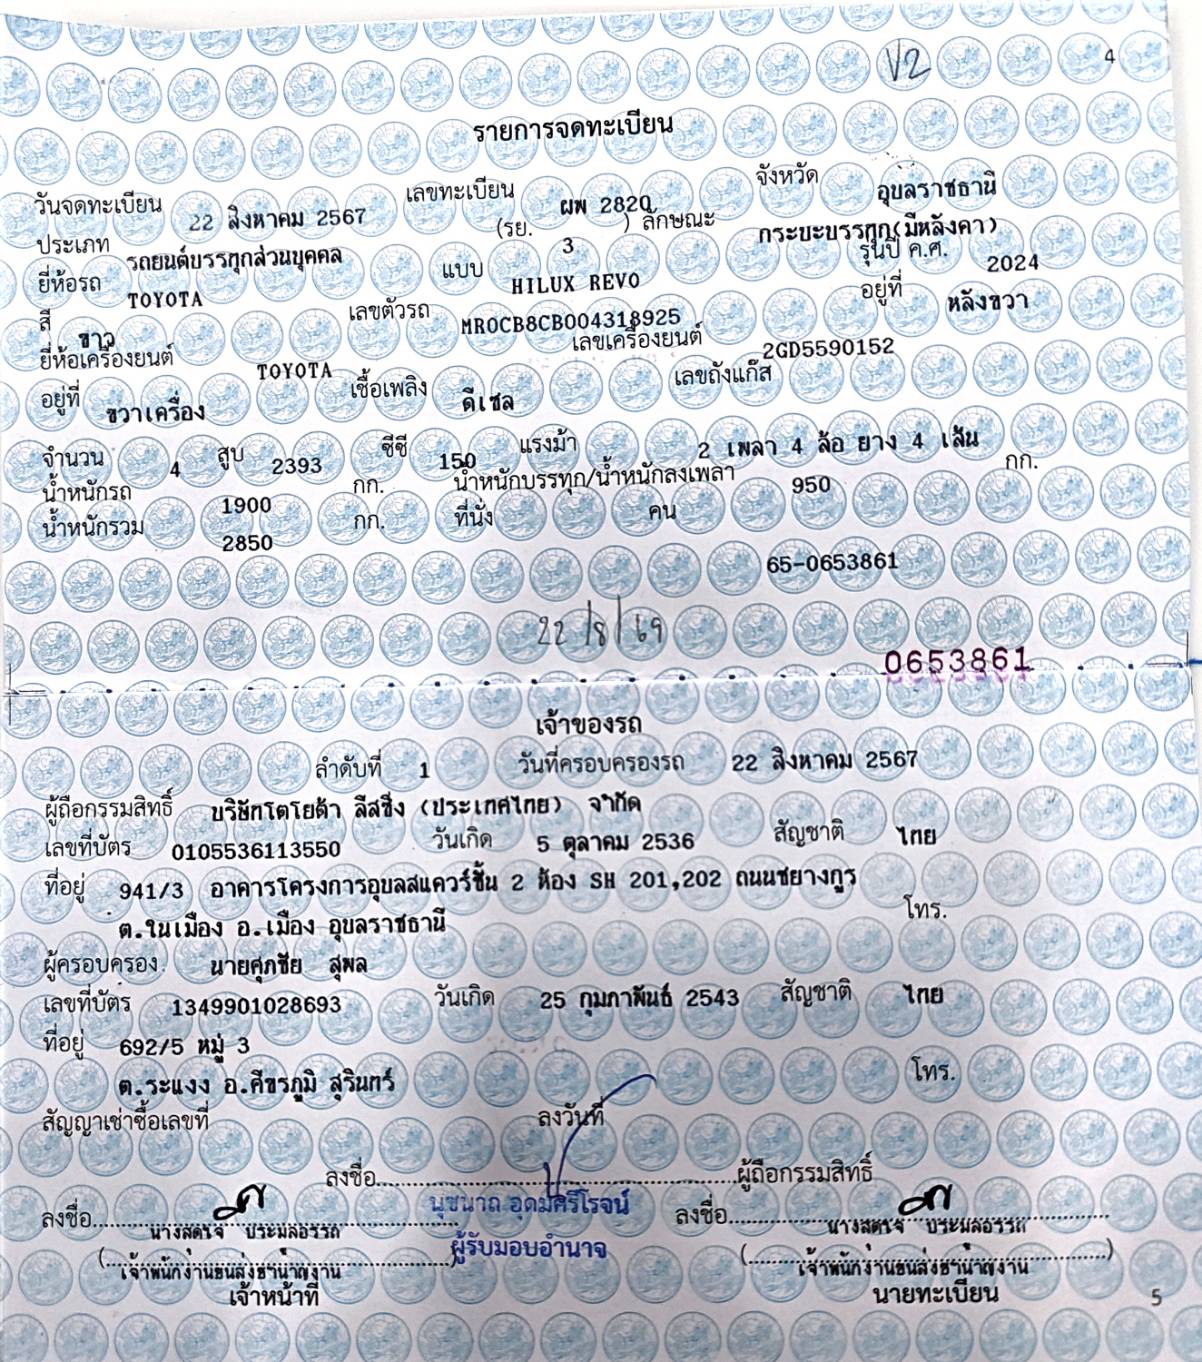 V2
4
รายการจดทะเบียน
วันจดทะเบียน 22 สิงหาคม 2567 เลขทะเบียน ผพ 2820 จังหวัด อุบลราชธานี
ประเภท รถยนต์บรรทุกส่วนบุคคล (รย. 3 ) ลักษณะ กระบะบรรทุก(มีหลังคา)
ยี่ห้อรถ TOYOTA แบบ HILUX REVO รุ่นปี ค.ศ. 2024
สี ขาว เลขตัวรถ MR0CB8CB004318925 อยู่ที่ หลังขวา
ยี่ห้อเครื่องยนต์ TOYOTA เลขเครื่องยนต์ 2GD5590152
อยู่ที่ ขวาเครื่อง เชื้อเพลิง ดีเซล เลขถังแก๊ส
จำนวน 4 สูบ 2393 ซีซี 150 แรงม้า 2 เพลา 4 ล้อ ยาง 4 เส้น
น้ำหนักรถ 1900 กก. น้ำหนักบรรทุก/น้ำหนักลงเพลา 950 กก.
น้ำหนักรวม 2850 กก. ที่นั่ง คน
65-0653861
22/8/69
0653861
เจ้าของรถ
ลำดับที่ 1 วันที่ครอบครองรถ 22 สิงหาคม 2567
ผู้ถือกรรมสิทธิ์ บริษัทโตโยต้า ลีสซิ่ง (ประเทศไทย) จำกัด
เลขที่บัตร 0105536113550 วันเกิด 5 ตุลาคม 2536 สัญชาติ ไทย
ที่อยู่ 941/3 อาคารโครงการอุบลสแควร์ชั้น 2 ห้อง SH 201,202 ถนนชยางกูร
ต.ในเมือง อ.เมือง อุบลราชธานี โทร.
ผู้ครอบครอง นายศุภชัย สุพล
เลขที่บัตร 1349901028693 วันเกิด 25 กุมภาพันธ์ 2543 สัญชาติ ไทย
ที่อยู่ 692/5 หมู่ 3
ต.ระแงง อ.ศีขรภูมิ สุรินทร์ โทร.
สัญญาเช่าซื้อเลขที่ ลงวันที่
ลงชื่อ ผู้ถือกรรมสิทธิ์
นุชนาถ อุดมศรีโรจน์
ผู้รับมอบอำนาจ
ลงชื่อ ลงชื่อ
เจ้าพนักงานขนส่งชำนาญงาน เจ้าพนักงานขนส่งชำนาญงาน
เจ้าหน้าที่ นายทะเบียน
5